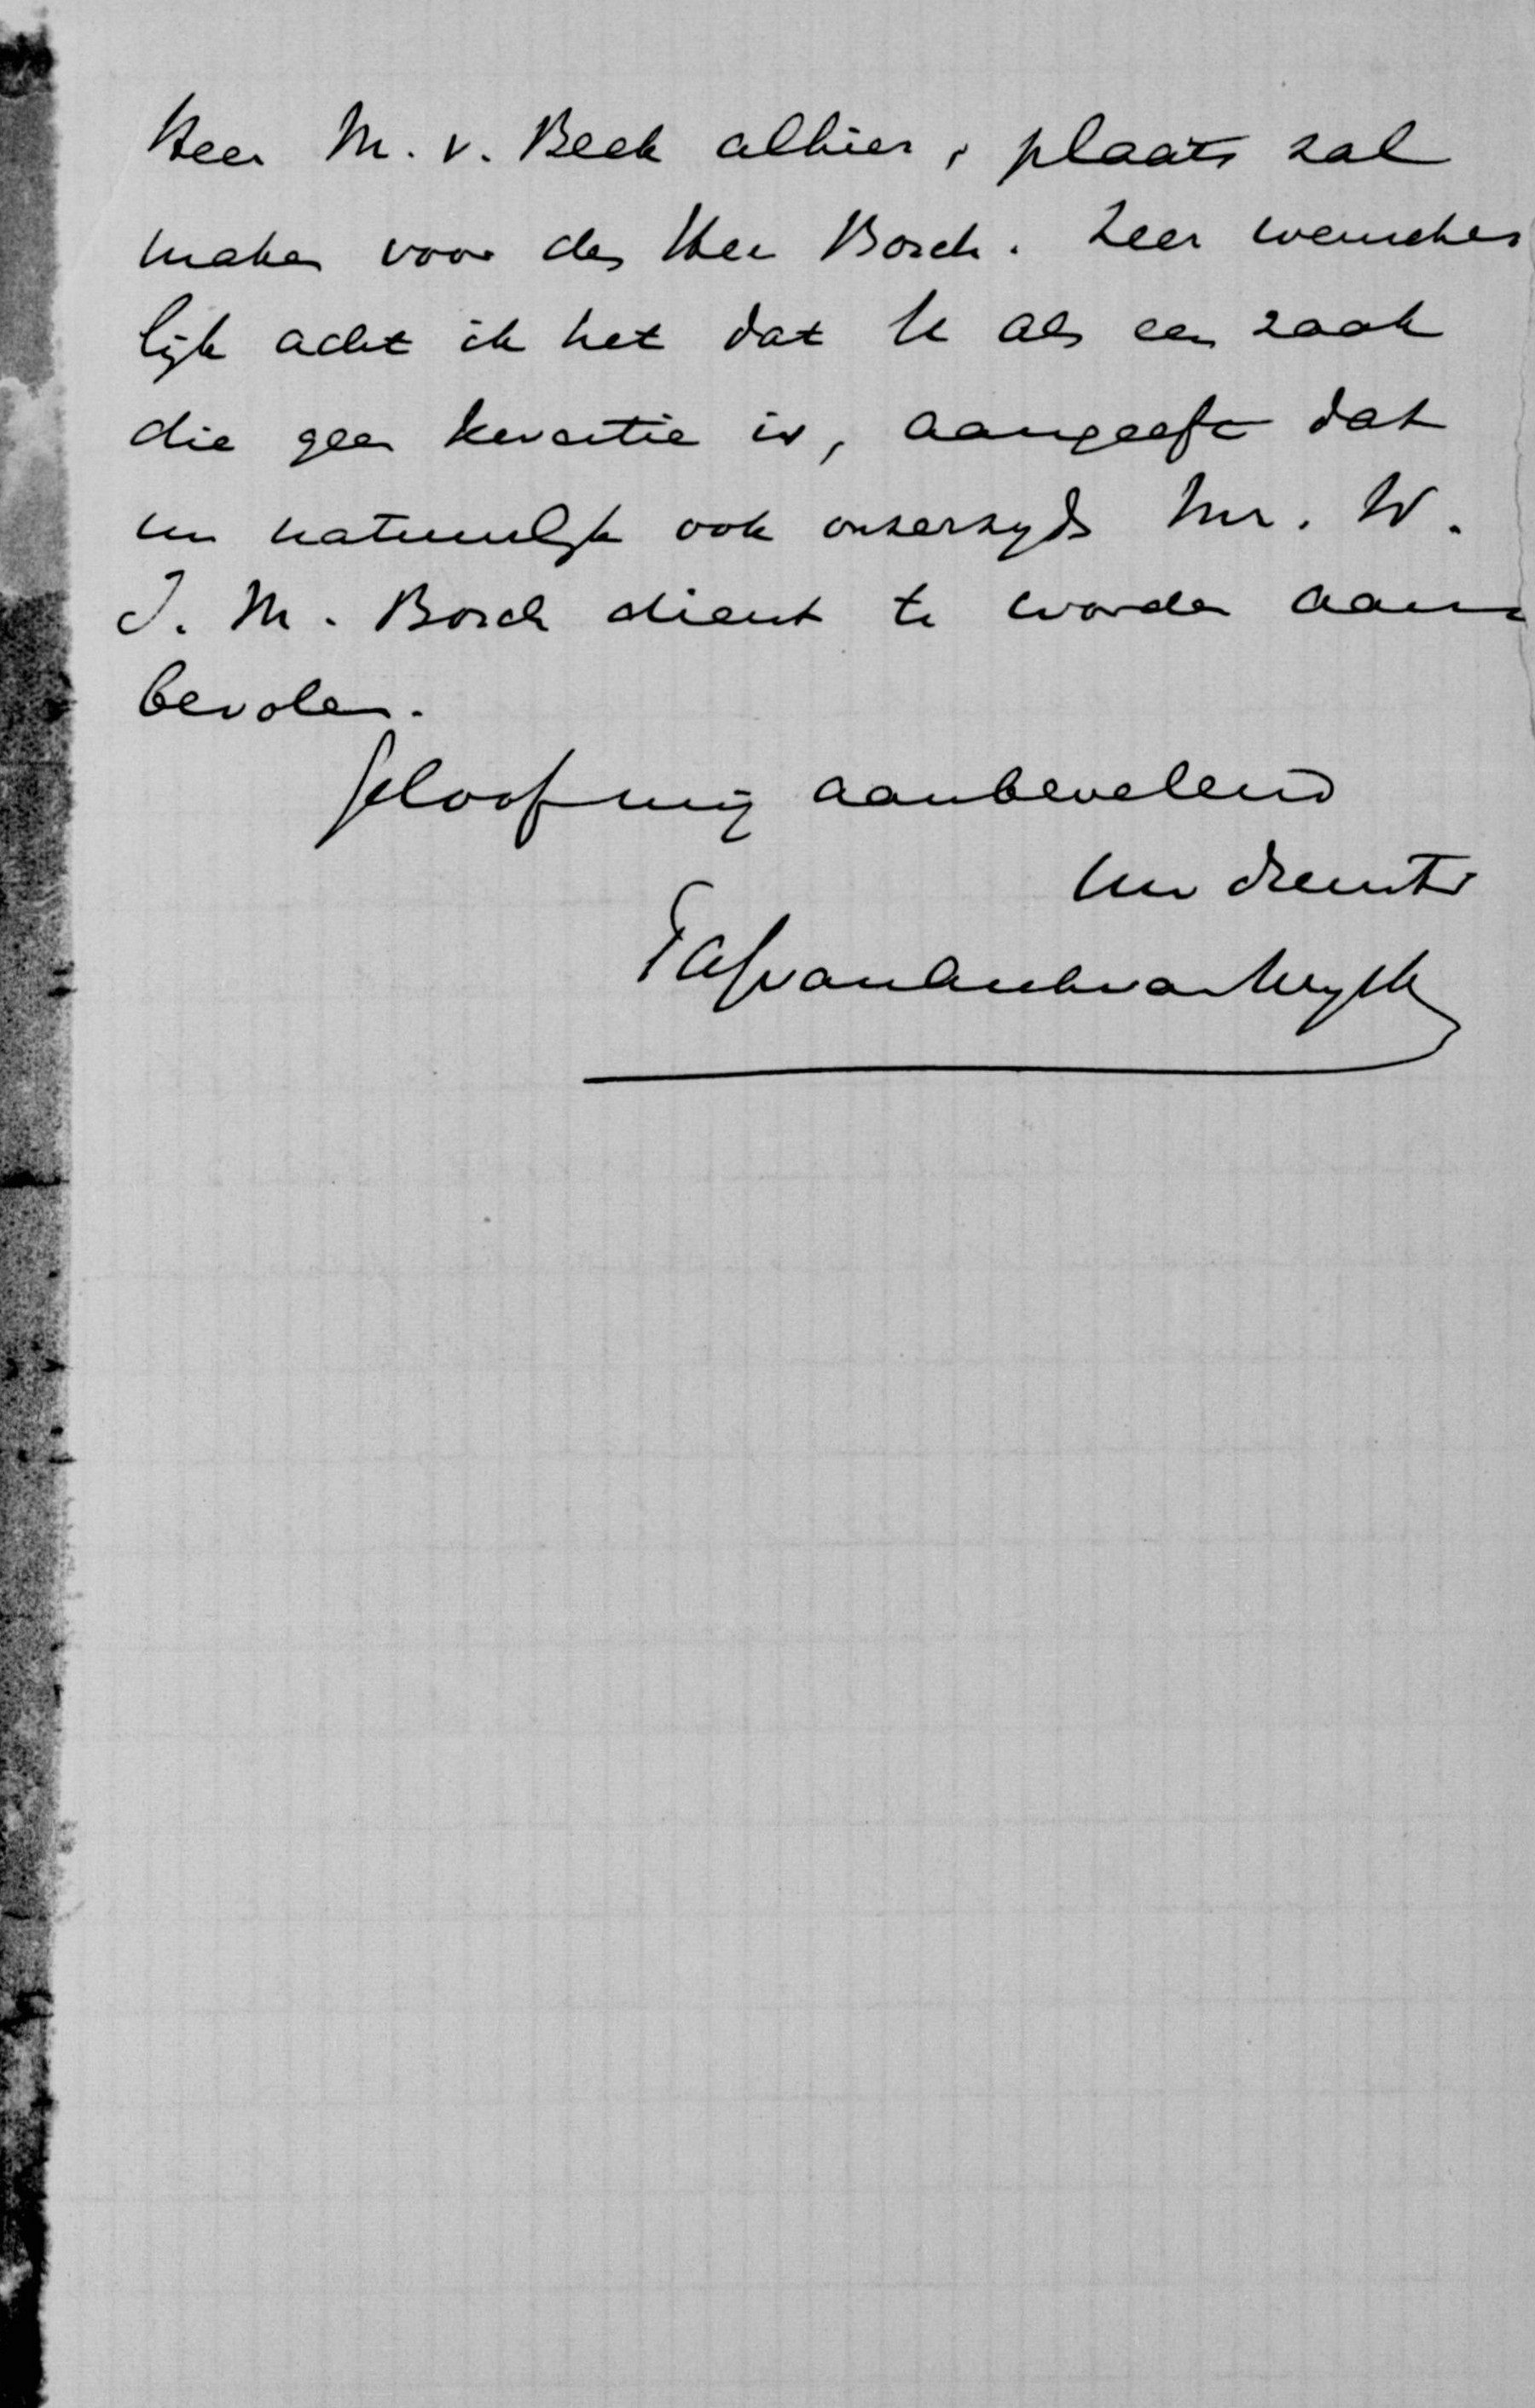 Heer M. v. Beek alhier, plaats zal
maken voor den Heer Bosch. Zeer wensche
lijk acht ik het dat U als een zaak
die geen kwestie is, aangeeft dat
nu natuurlijk ook onzerzyds Mr. W.
J. M. Bosch dient te worden aan
bevolen.
Geloof mij aanbevelend
Uw dienstv